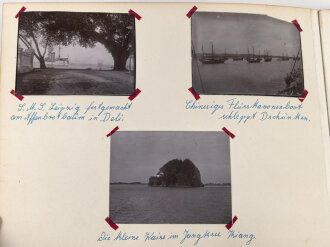 S.M.S. Leipzig festgemacht
am Affenbrotbaum in Deli.
Chinesiges Flusskanonenboot
schleppt Dschunken.
Die kleine Waise im Jangtsee Kiang.